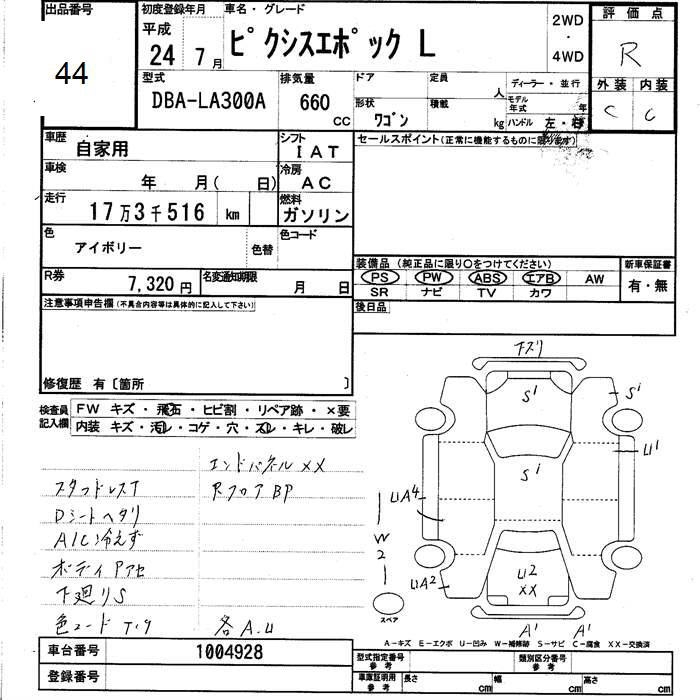 出品番号
44
初度登録年月
平成
24 7月
車名・グレード
ピクシスエポック L
2WD
・
4WD
評価点
R
型式
DBA-LA300A
排気量
660
CC
ドア
定員
人
ディーラー・並行
モデル年式
年
形状
ワゴン
積載
kg
ハンドル 左・右
外装 内装
C C
車歴
自家用
シフト
IAT
車検
年 月( 日)
冷房
AC
走行
17万3千516 km
燃料
ガソリン
色
アイボリー
色替
色コード
R券
7,320円
名変通知期限
月 日
セールスポイント(正常に機能するものに限ります)
装備品(純正品に限り○をつけてください)
PS PW ABS エアB AW
SR ナビ TV カワ
新車保証書
有・無
後日品
注意事項申告欄(不具合内容等は具体的に記入して下さい)
修復歴 有〔箇所 〕
検査員記入欄
FW キズ・飛石・ヒビ割・リペア跡・×要
内装 キズ・汚レ・コゲ・穴・ズレ・キレ・破レ
エンドパネルXX
スタッドレスT
RフロアBP
Dシートヘタリ
A/C冷えず
ボディPアセ
下廻りS
色コード T19
各A.U
下ズリ
S1
S1
U1
S1
UA4
W2
UA2
U2
XX
A1 A1
スペア
A－キズ E－エクボ U－凹み W－補修跡 S－サビ C－腐食 XX－交換済
車台番号
1004928
登録番号
型式指定番号
参考
類別区分番号
参考
車庫証明用
参考
長さ cm 幅 cm 高さ cm